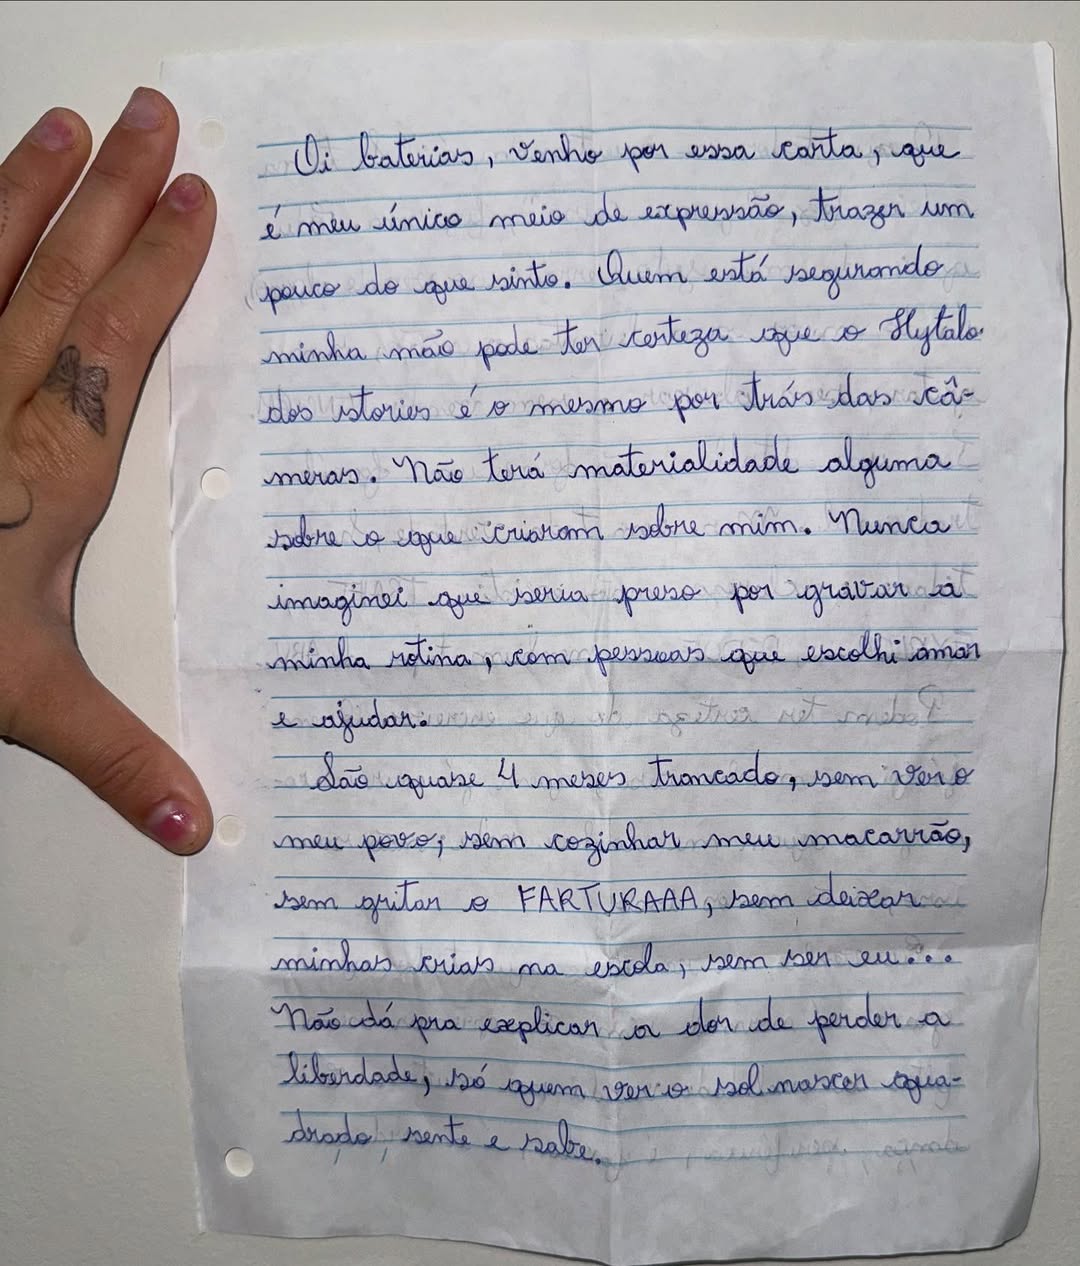 Oi baterias, venho por essa carta, que
é meu único meio de expressão, trazer um
pouco do que sinto. Quem está segurando
minha mão pode ter certeza que o Hytalo
dos stories é o mesmo por trás das câ-
meras. Não terá materialidade alguma
sobre o que criaram sobre mim. Nunca
imaginei que seria preso por gravar a
minha rotina, com pessoas que escolhi amar
e ajudar.
São quase 4 meses trancado, sem ver o
meu povo, sem cozinhar meu macarrão,
sem gritar o FARTURAAA, sem deixar
minhas crias na escola, sem ser eu...
Não dá pra explicar a dor de perder a
liberdade, só quem ver o sol nascer qua-
drado sente e sabe.